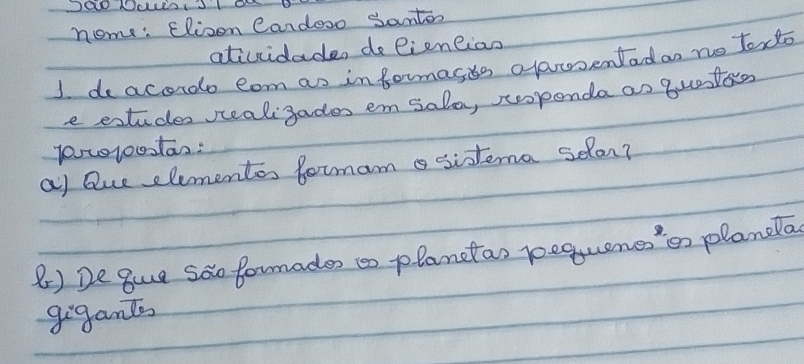 nome: Elison Cardoso Santos
atividades de Ciencias
1. de acordo com as informações apresentadas no texto
e estudos realizados em sala, responda as questões
propostas:
a) Que elementos formam o sistema solar?
b) De que são formados os planetas pequenos e os planetas
gigantes